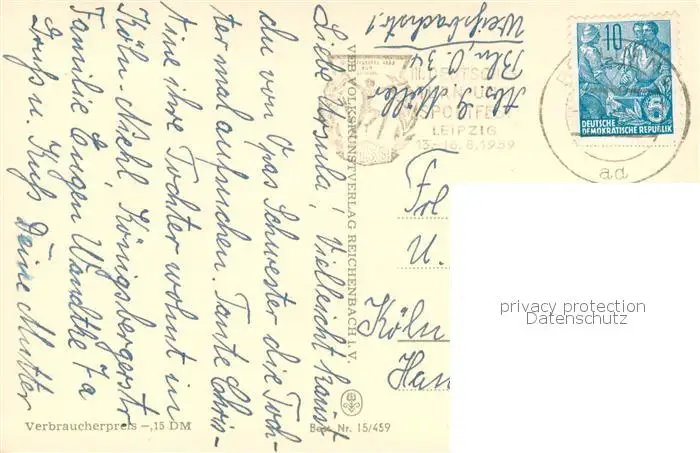 Liebe Ursula! Vielleicht kannst
du von Opas Schwester die Toch-
ter mal aufsuchen. Tante Chris-
tine ihre Tochter wohnt in
Köln-Niehl Königsbergerstr.
Familie Eugen Wandtke 7a
Gruß u. Kuß Deine Mutter
Abs. Schüler
Bln, O 34
Weißbachstr. 1
III. DEUTSCHES
TURN- UND
SPORTFEST
LEIPZIG
13.-16.8.1959
10
DEUTSCHE
DEMOKRATISCHE REPUBLIK
ad
u.
Köln
VEB VOLKSKUNSTVERLAG REICHENBACH i. V.
Verbraucherpreis -,15 DM
Best. Nr. 15/459
privacy protection
Datenschutz